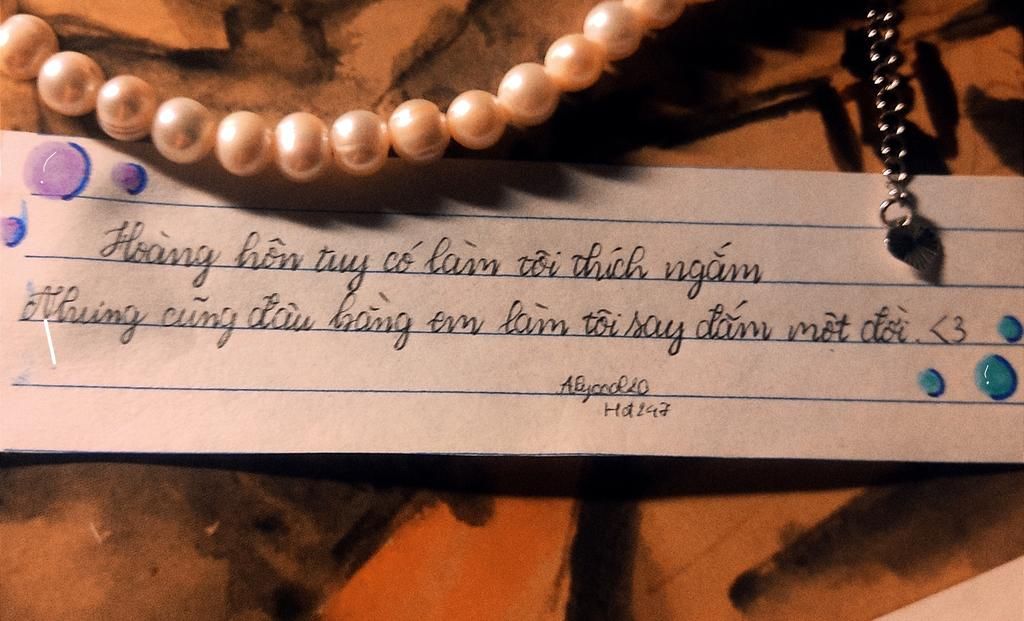 Hoàng hôn tuy có làm tôi thích ngắm
Nhưng cũng đâu bằng em làm tôi say đắm một đời. <3
Hd247